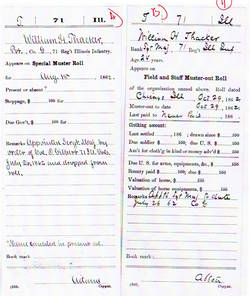 71 Ill.
William H. Thacker
Pvt., Co. G, 71 Reg't Illinois Infantry.
Appears on
Special Muster Roll
for Aug 10, 1862.
Present or absent?
Stoppage, $ 100 for
Due Gov't, $ 100 for
Remarks: Appointed Sergt. Maj. by
order of Col. O. Gilbert 71 Ill. Vols.
July 26, 1862 and dropped from
roll.
Book mark:
Adams
Copyist.
71 Ill
William H Thacker
Rank Sgt Maj, 71 Reg't Ill Inf
Age 24 years.
Appears on
Field and Staff Muster-out Roll
of the organization named above. Roll dated
Chicago Ill Oct 29, 1862.
Muster-out to date Oct 29, 1862.
Last paid to Never Paid, 186
Clothing account:
Last settled , 186 ; drawn since $ 100
Due soldier $ 100; due U.S. $ 100
Am't for cloth'g in kind or money adv'd $ 100
Due U.S. for arms, equipments, &c., $ 100
Bounty paid $ 100; due $ 100
Valuation of horse, $ 100
Valuation of horse equipments, $ 100
Remarks: Sgt Maj
July 26 62 Co G
Book mark:
Copyist.